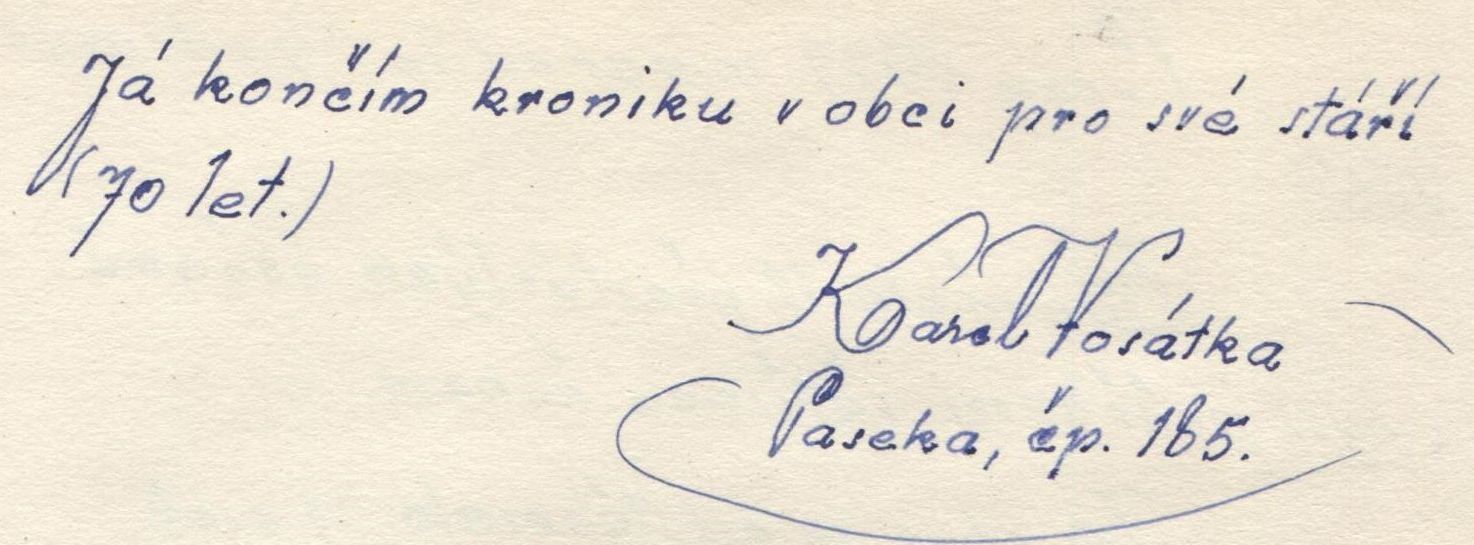 Já končím kroniku v obci pro své stáří
(70 let.)
Karel Vosátka
Paseka, čp. 185.